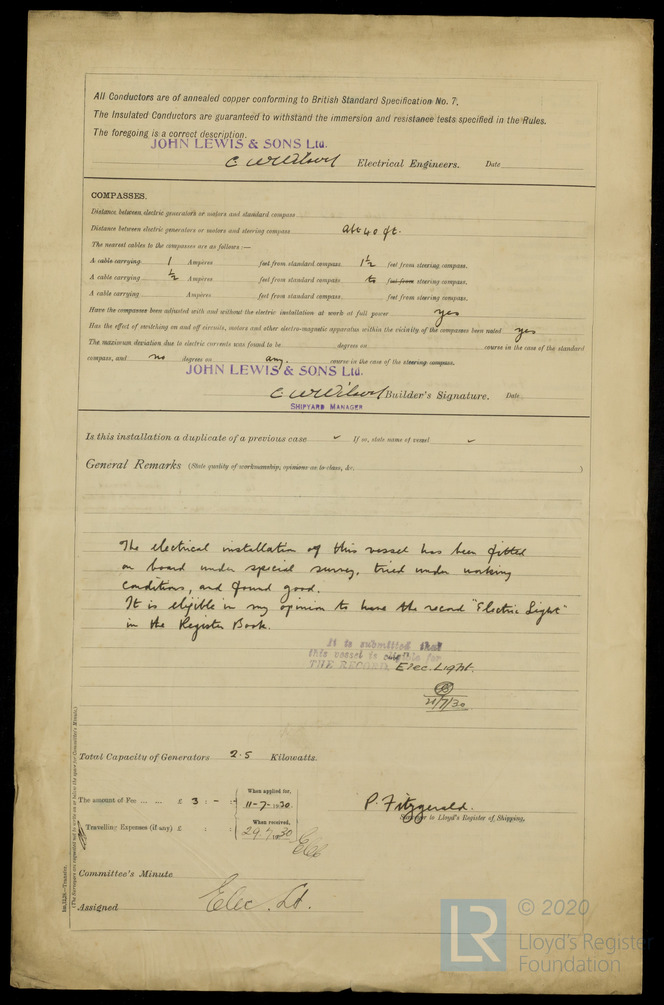 All Conductors are of annealed copper conforming to British Standard Specification No. 7.
The Insulated Conductors are guaranteed to withstand the immersion and resistance tests specified in the Rules.
The foregoing is a correct description.
JOHN LEWIS & SONS Ltd.
C W Wilson Electrical Engineers. Date
COMPASSES.
Distance between electric generators or motors and standard compass
Distance between electric generators or motors and steering compass abt 40 ft.
The nearest cables to the compasses are as follows :—
A cable carrying 1 Ampères feet from standard compass 1½ feet from steering compass.
A cable carrying ½ Ampères feet from standard compass to feet from steering compass.
A cable carrying Ampères feet from standard compass. feet from steering compass.
Have the compasses been adjusted with and without the electric installation at work at full power yes
Has the effect of switching on and off circuits, motors and other electro-magnetic apparatus within the vicinity of the compasses been noted yes
The maximum deviation due to electric currents was found to be degrees on course in the case of the standard
compass, and no degrees on any. course in the case of the steering compass.
JOHN LEWIS & SONS Ltd.
C W Wilson Builder's Signature. Date
SHIPYARD MANAGER
Is this installation a duplicate of a previous case ✓ If so, state name of vessel ✓
General Remarks (State quality of workmanship, opinions as to class, &c. )
The electrical installation of this vessel has been fitted
on board under special survey, tried under working
conditions, and found good.
It is eligible in my opinion to have the record "Electric Light"
in the Register Book.
It is submitted that
this vessel is eligible for
THE RECORD. Elec. Light.
21/7/30
Total Capacity of Generators 2.5 Kilowatts.
The amount of Fee ... ... £ 3 : - : When applied for, 11-7-1930.
Travelling Expenses (if any) £ : : When received, 29.7.1930
P. Fitzgerald.
Surveyor to Lloyd's Register of Shipping.
Committee's Minute
Assigned Elec. Lt.
(The Surveyors are requested not to write on or below the space for Committee's Minute.)
LR
© 2020
Lloyd's Register
Foundation